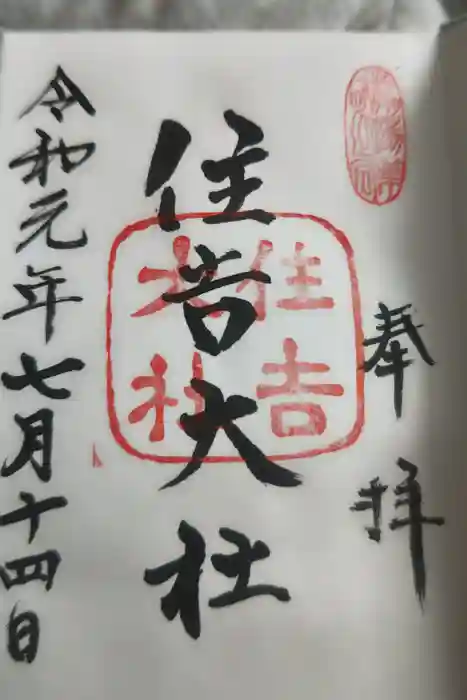 奉拝
住吉大社
住吉
大社
令和元年七月十四日